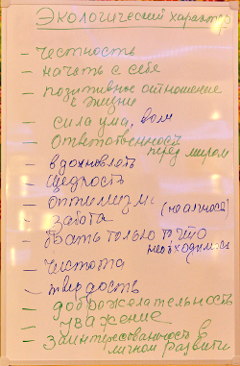 Экологический характер
- Честность
- начать с себя
- позитивное отношение
к жизни
сила ума, воли
- Ответственность
перед миром
- вдохновлять
- щедрость
- оптимизм
- забота (не алчность)
- Брать только то, что
необходимо
- Чистота
- твёрдость
- доброжелательность
- уважение
- Заинтересованность в
личном развитии